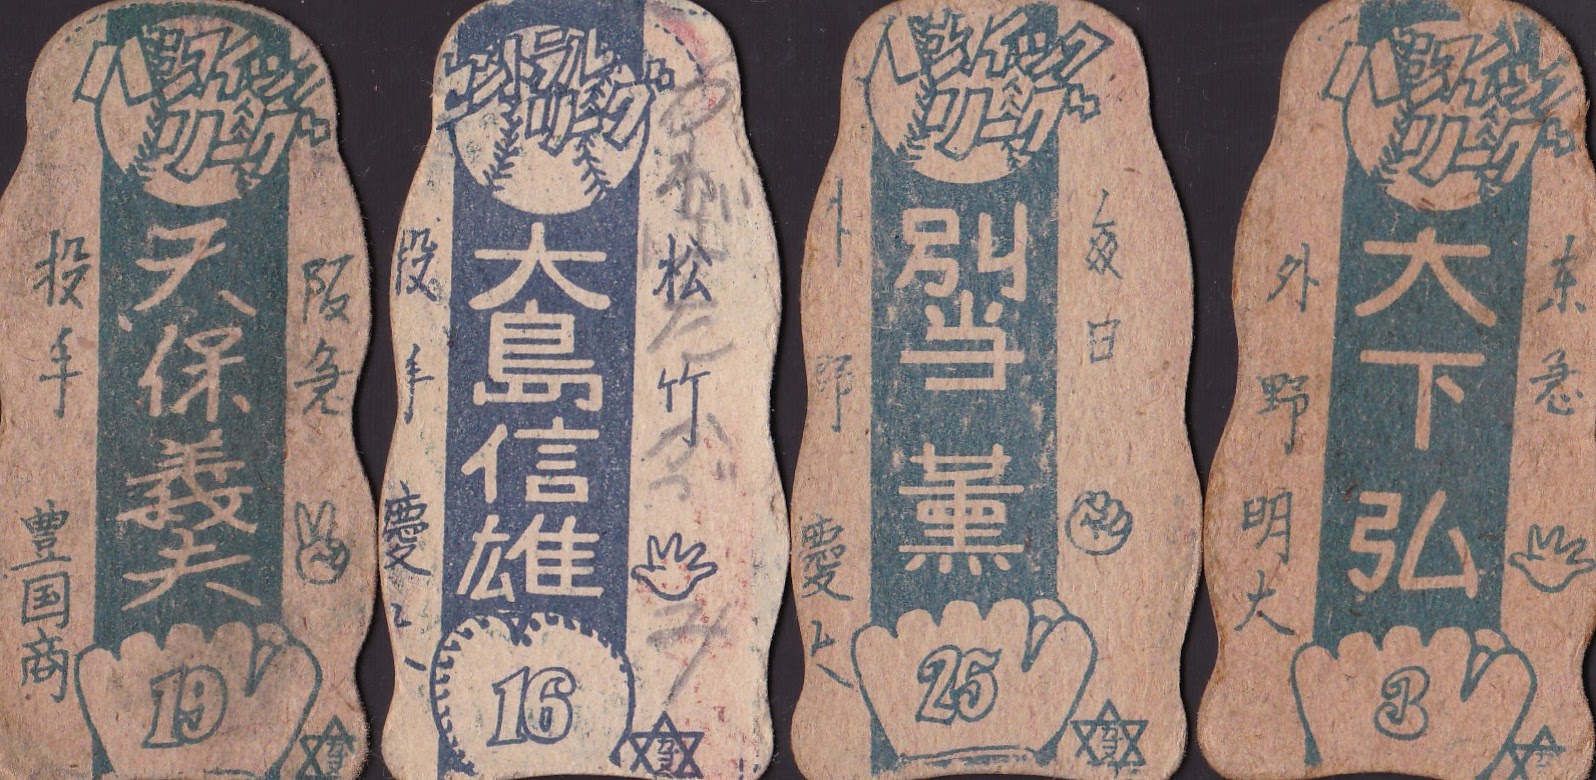 パシフィック
リーグ
阪急
天保義夫
投手
豊国商
19
セントラル
リーグ
松竹
大島信雄
投手
慶大
16
パシフィック
リーグ
毎日
別当薫
外野
慶大
25
パシフィック
リーグ
东急
大下弘
外野
明大
3